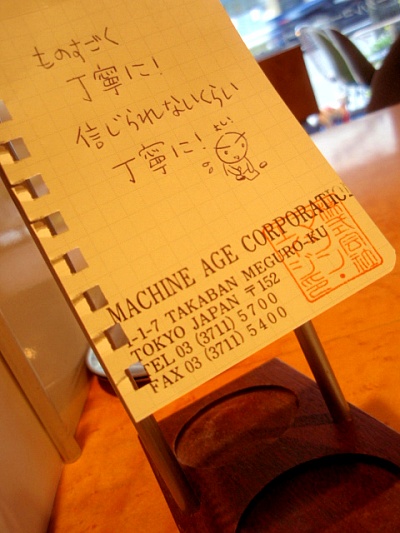 ものすごく
丁寧に!
信じられないくらい
丁寧に!
MACHINE AGE CORPORATION
1-1-7 TAKABAN MEGURO-KU
TOKYO JAPAN 〒152
TEL 03 (3711) 5700
FAX 03 (3711) 5400